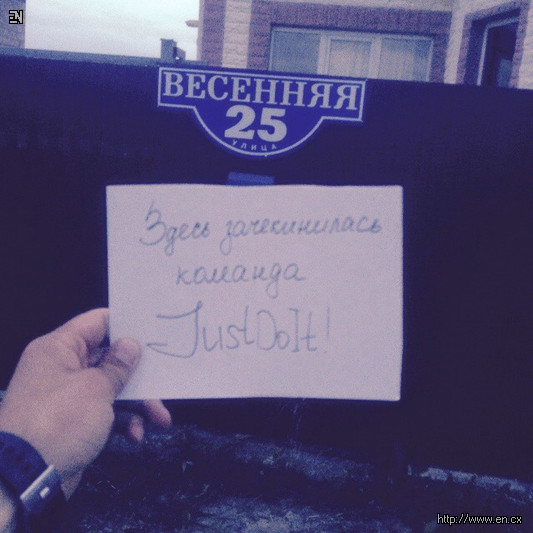 EN
ВЕСЕННЯЯ
25
УЛИЦА
Здесь зачекинилась
команда
JustDoIt!
http://www.en.cx